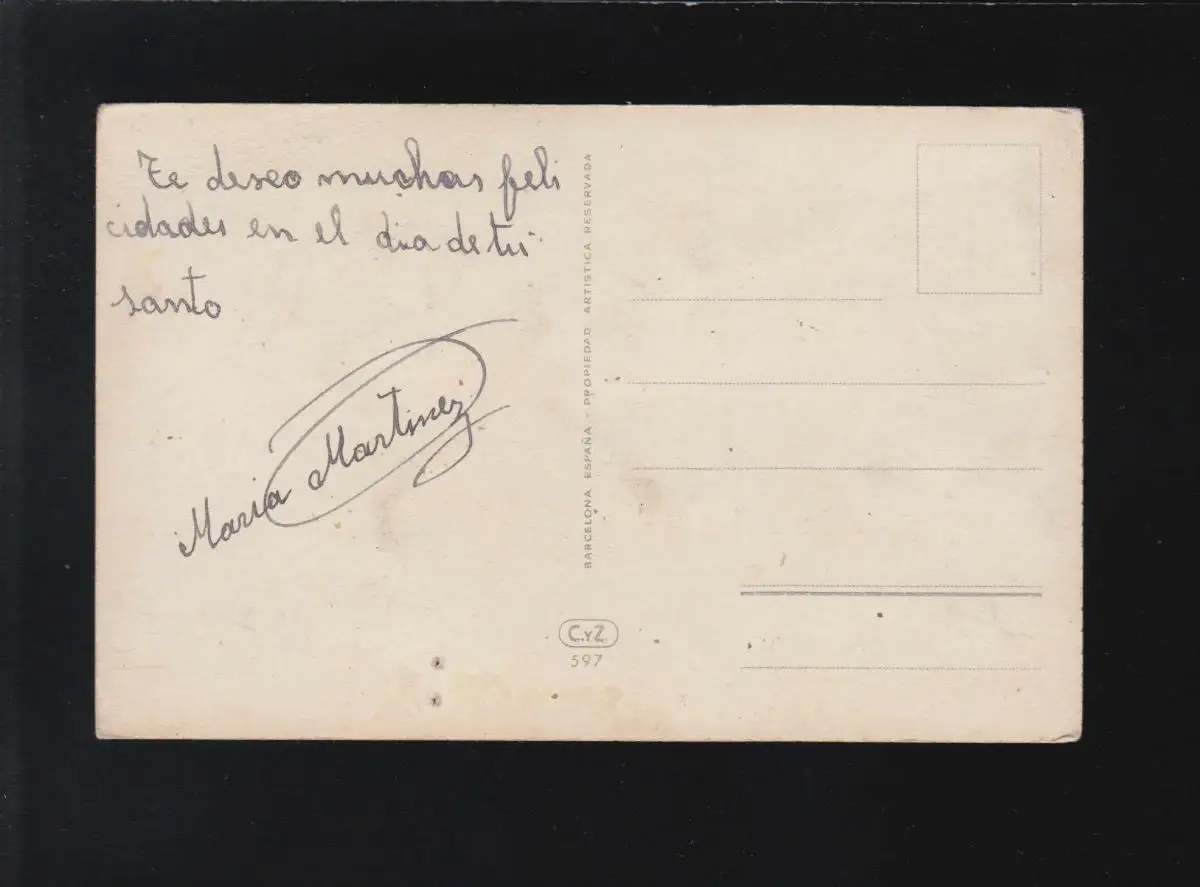 Te deseo muchas feli
cidades en el dia de tu
santo
Maria Martinez
BARCELONA ESPAÑA - PROPIEDAD ARTISTICA RESERVADA
C.Y.Z.
597